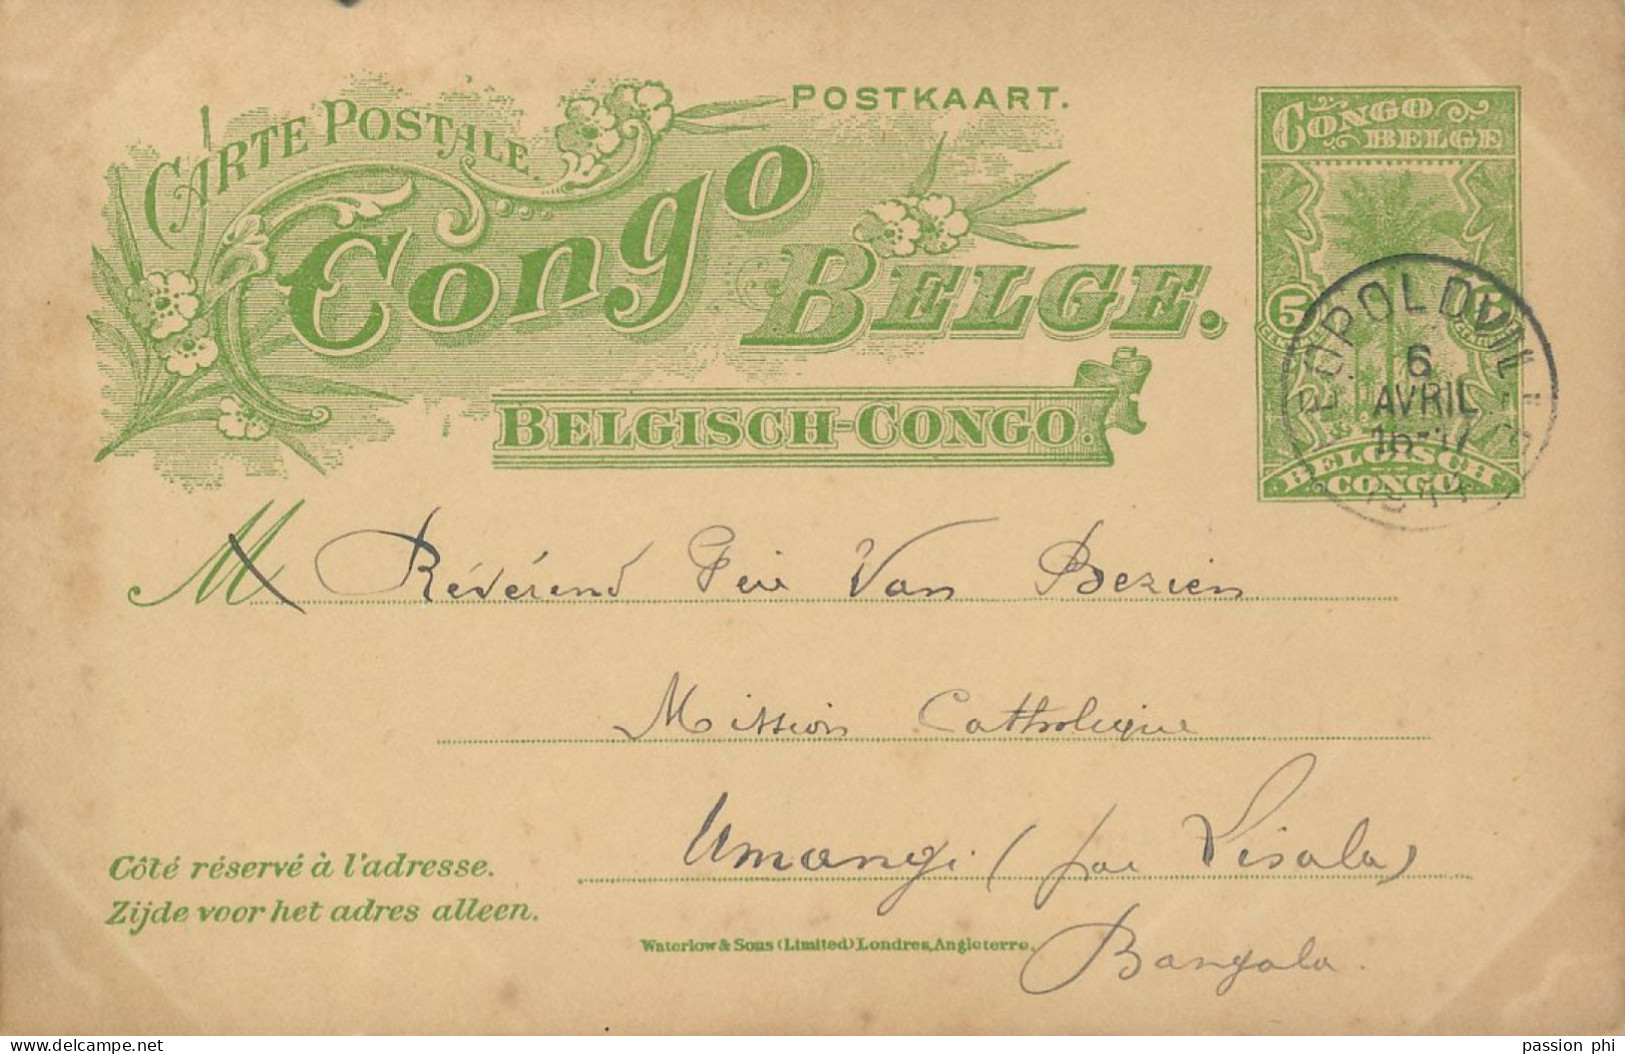 CARTE POSTALE.
POSTKAART.
Congo
BELGE.
BELGISCH-CONGO.
CONGO
BELGE
5 5
BELGISCH
CONGO
LEOPOLDVILLE
6
AVRIL
16-17
M Révérend Père Van
Mission Catholique
Umangi (par Lisala)
Bangala.
Côté réservé à l'adresse.
Zijde voor het adres alleen.
Waterlow & Sons (Limited) Londres, Angleterre.
passion phi